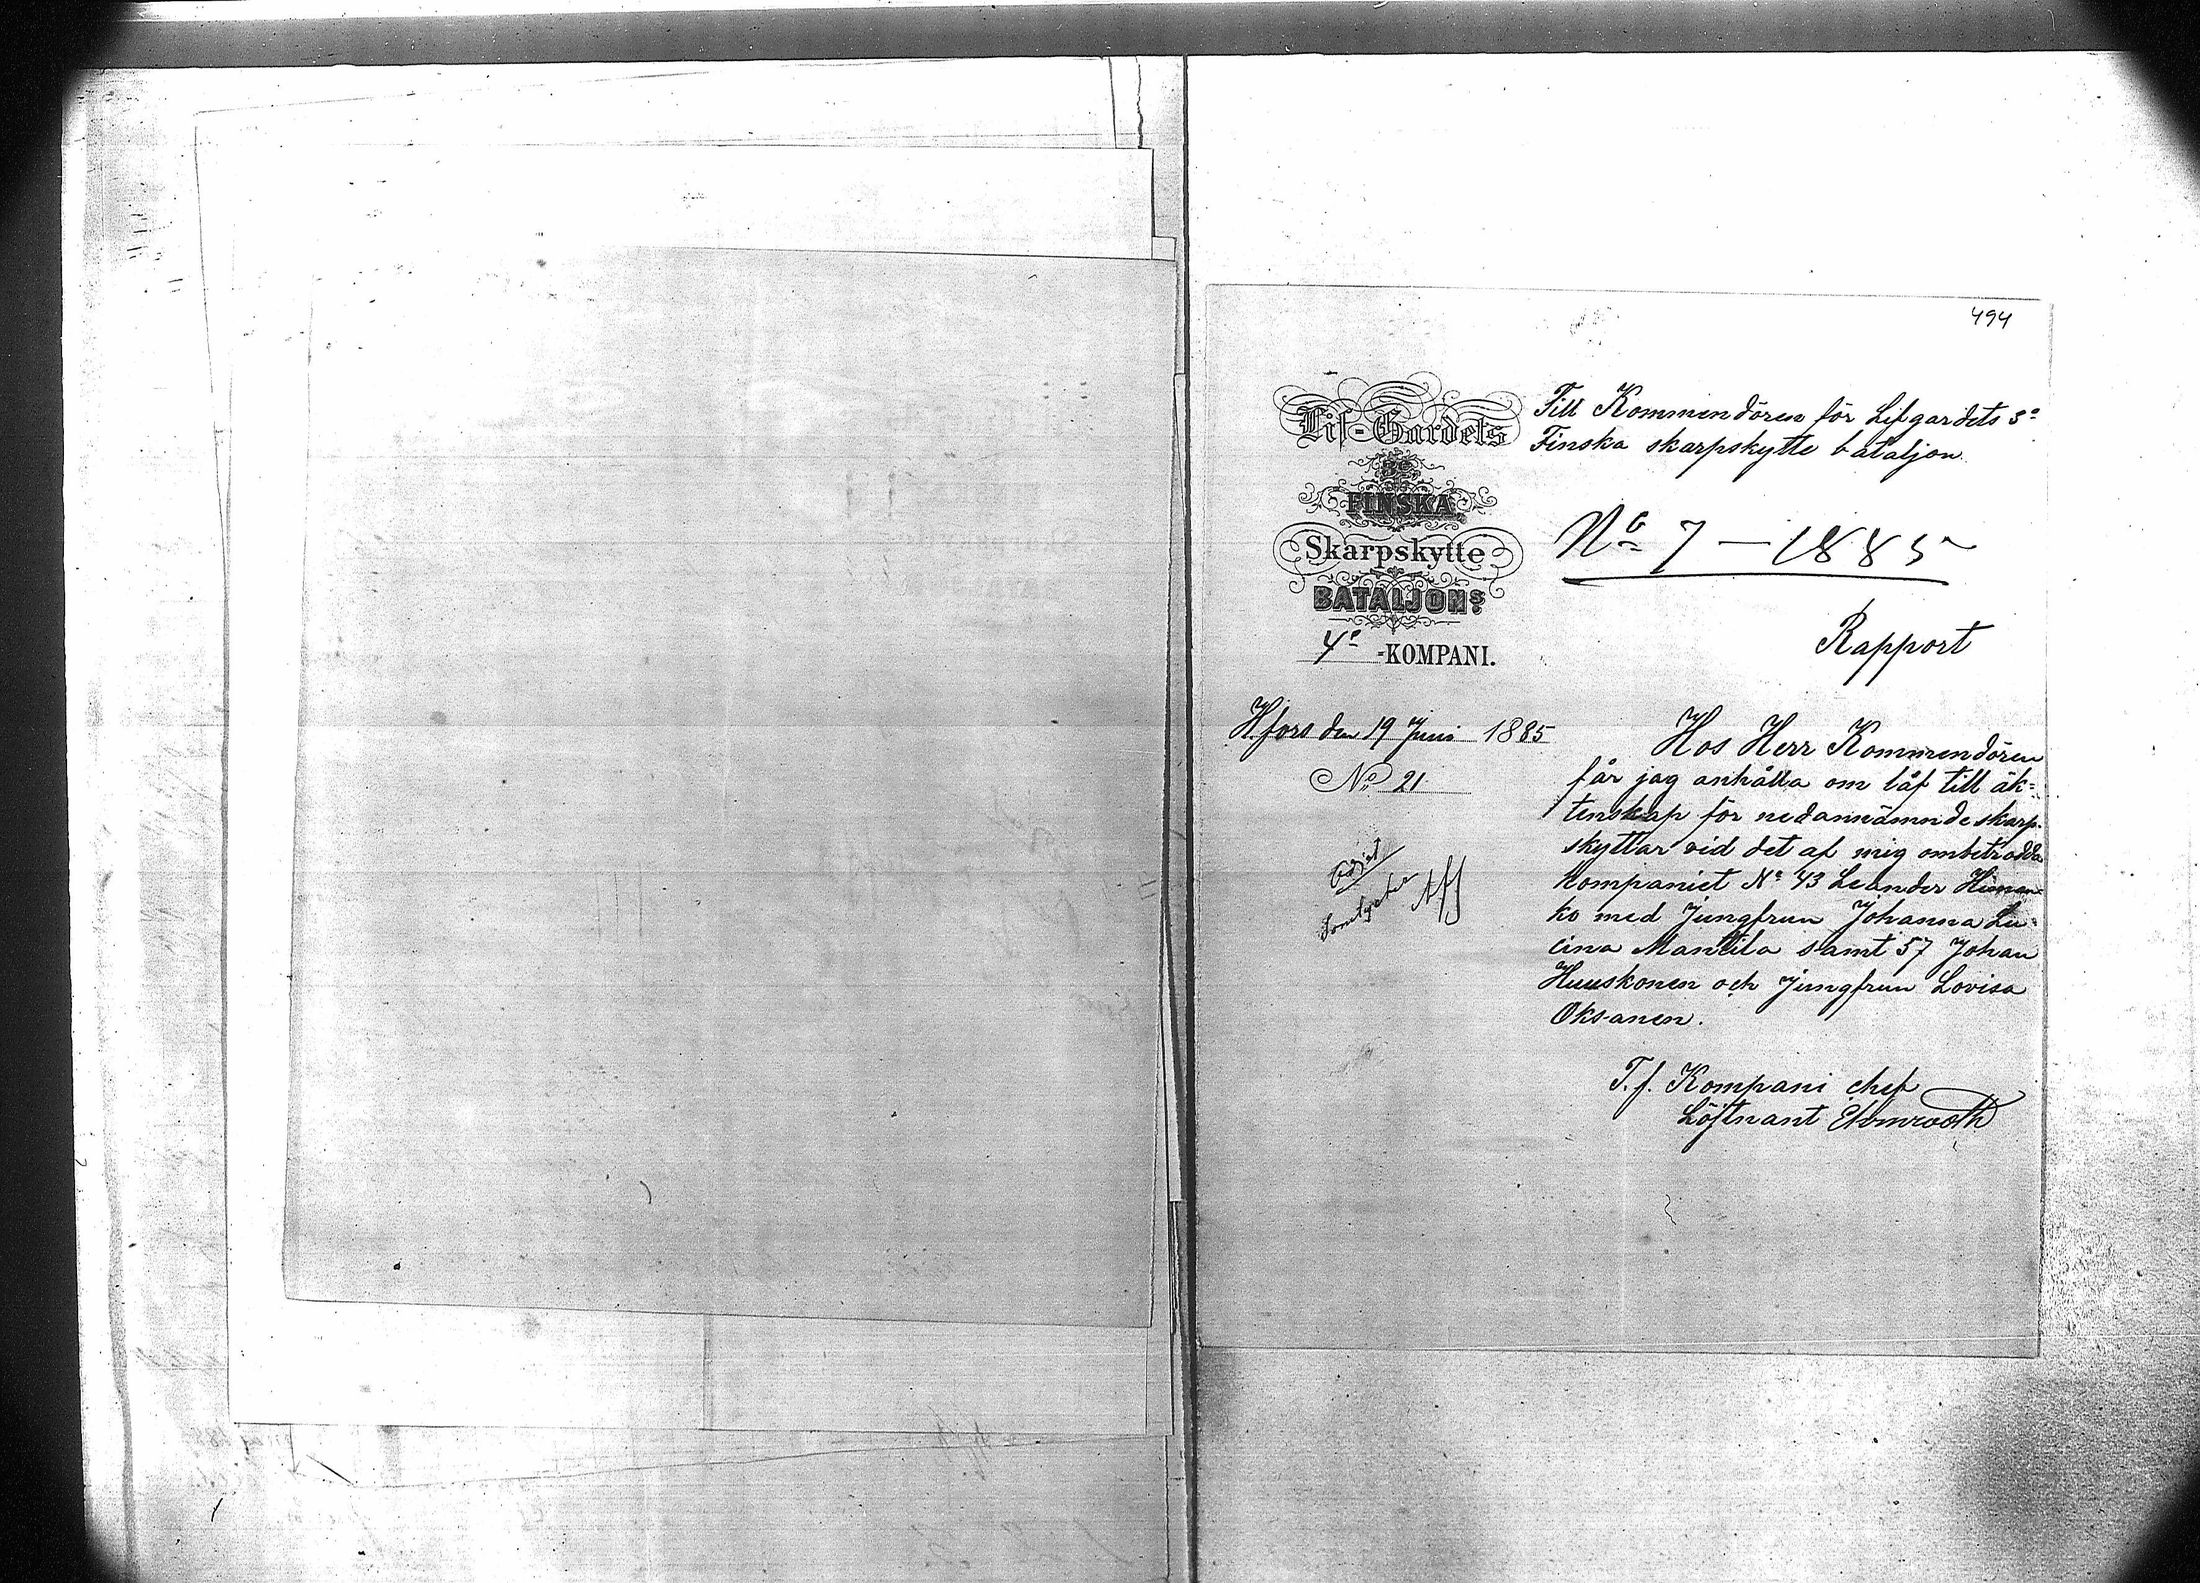 494
Lif-Gardets
3e
FINSKA
Skarpskytte
BATALJONS
4e -KOMPANI.
Hfors den 19 Juni 1885
No 21
Till Kommendören för Lifgardets 3e
Finska skarpskytte bataljon.
No 7 – 1885
Rapport
Hos Herr Kommendören
får jag anhålla om låf till äk-
tenskap för nedannämnde skarp-
skyttar vid det af mig ombetrodda
kompaniet No 43 Leander
ko med Jungfrun Johanna Lu-
cina Mantila samt 57 Johan
Huuskonen och Jungfrun Lovisa
Oksanen.
T. f. Kompani chef
Löjtnant Ehrnrooth